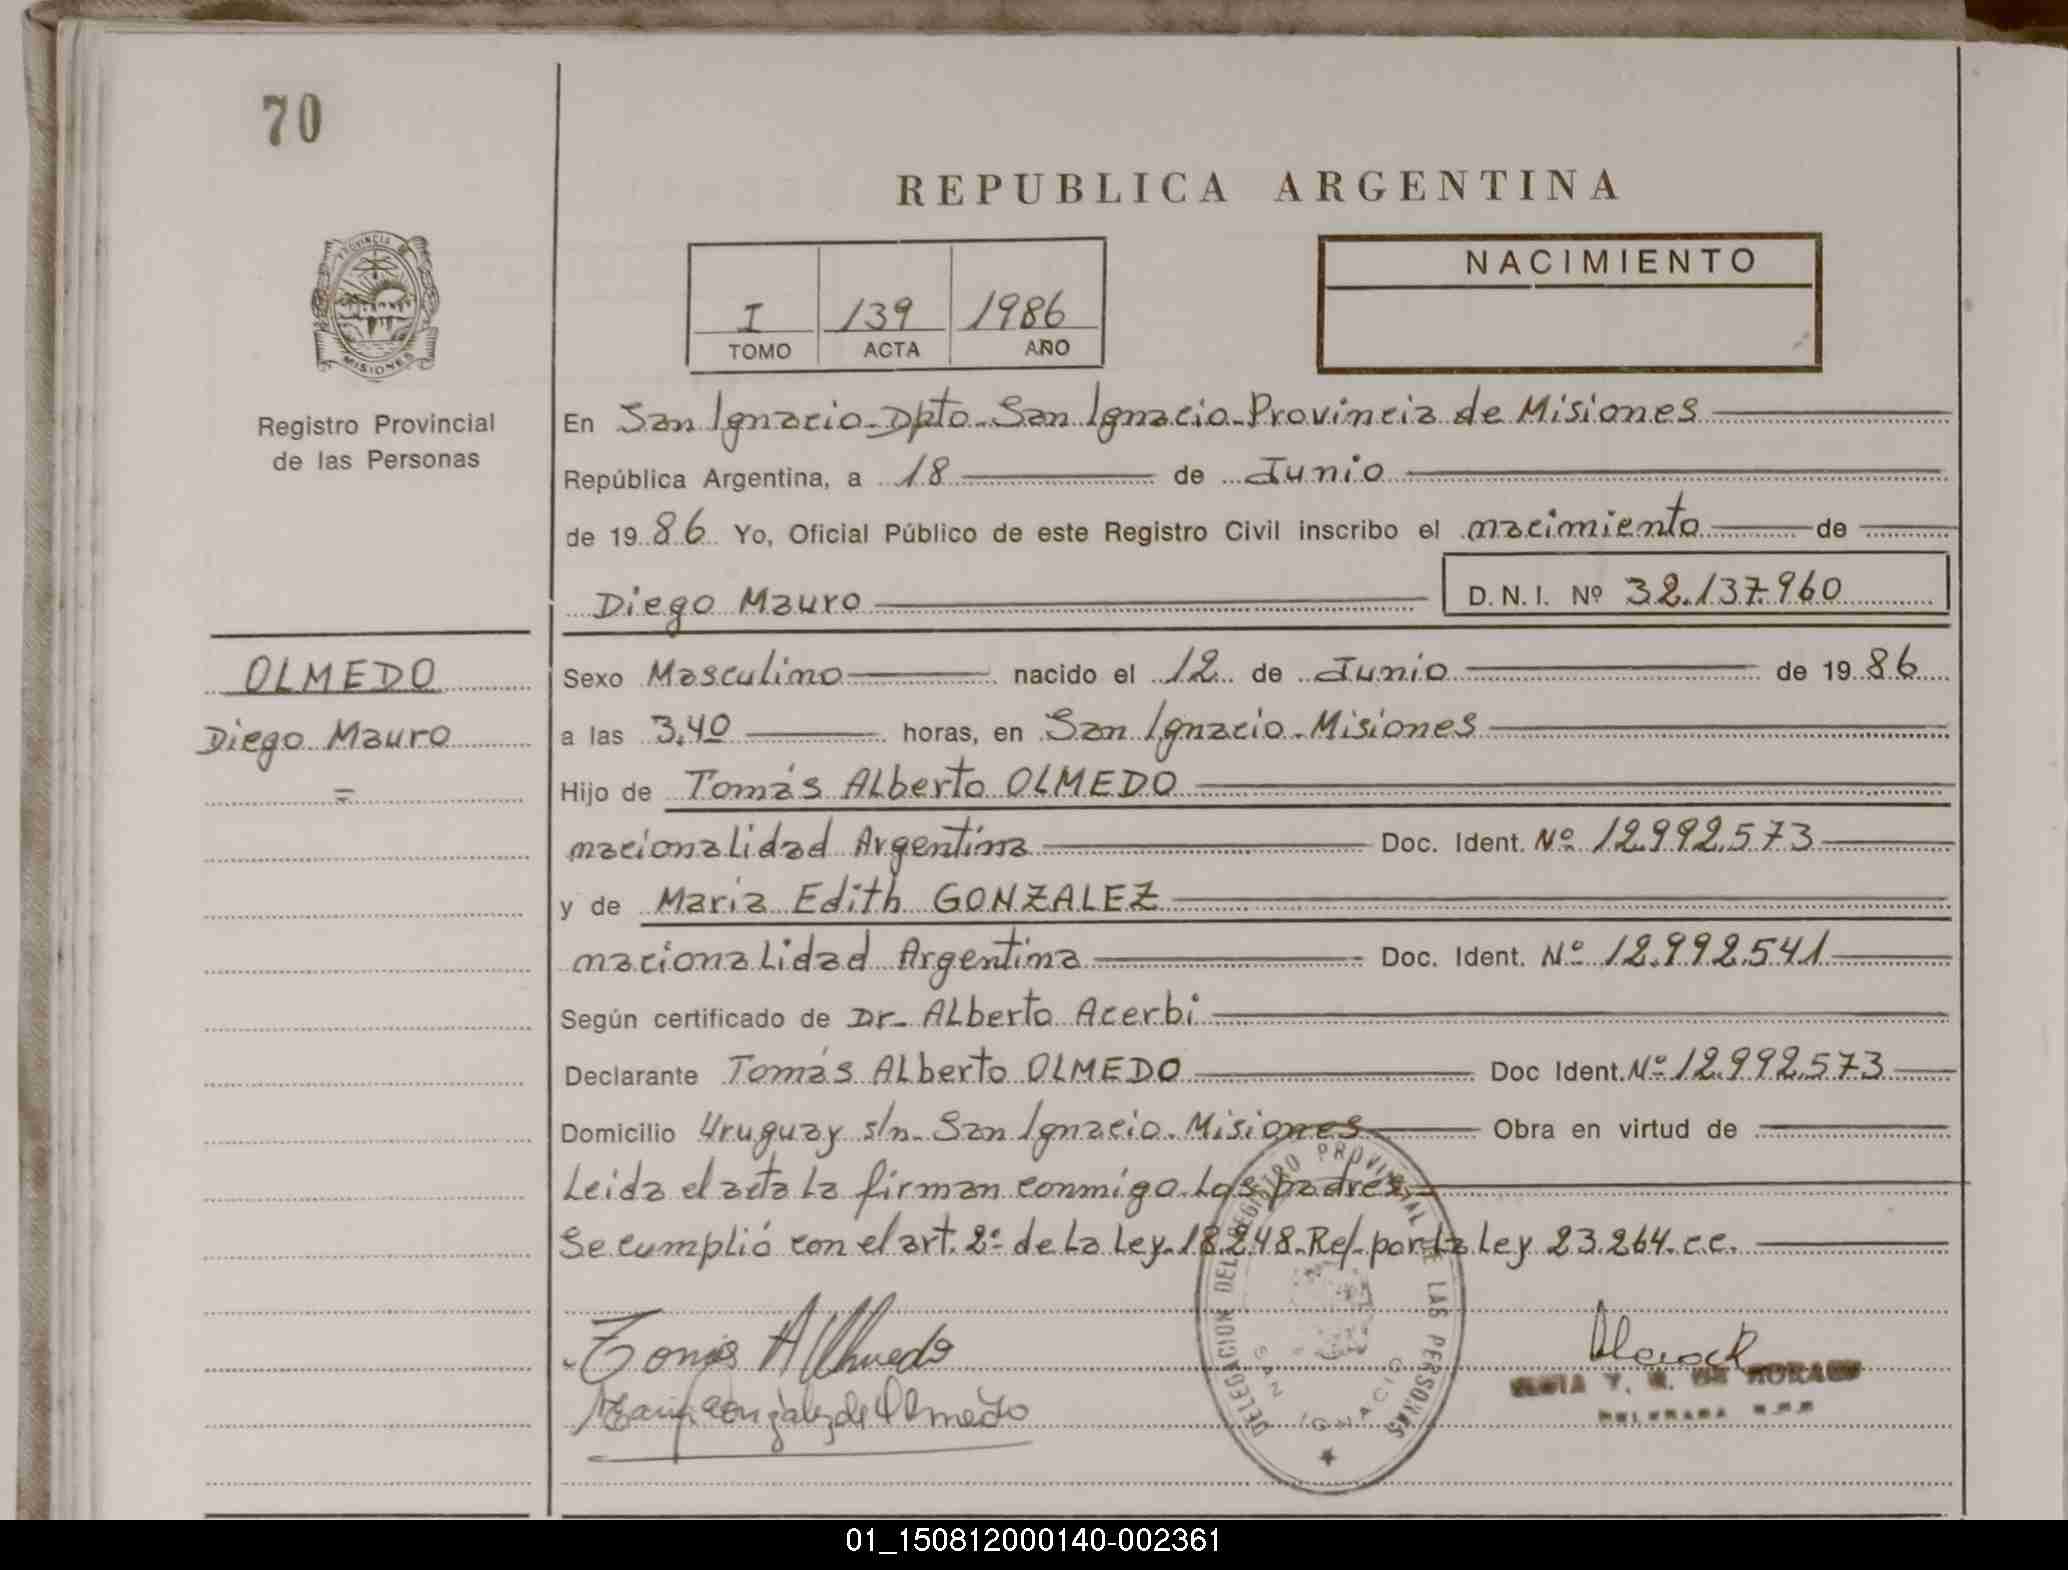 70
REPUBLICA ARGENTINA
PROVINCIA DE
MISIONES
Registro Provincial
de las Personas
I 139 1986
TOMO ACTA AÑO
NACIMIENTO
En San Ignacio-Dpto-San Ignacio-Provincia de Misiones
República Argentina, a 18 de Junio
de 1986 Yo, Oficial Público de este Registro Civil inscribo el nacimiento de
Diego Mauro D.N.I. Nº 32.137.960
OLMEDO
Diego Mauro
=
Sexo Masculino nacido el 12 de Junio de 1986
a las 3,40 horas, en San Ignacio-Misiones
Hijo de Tomás Alberto OLMEDO
nacionalidad Argentina Doc. Ident. Nº 12.992.573
y de Maria Edith GONZALEZ
nacionalidad Argentina Doc. Ident. Nº 12.992.541
Según certificado de Dr- Alberto Acerbi
Declarante Tomás Alberto OLMEDO Doc Ident. Nº 12.992.573
Domicilio Uruguay s/n- San Ignacio-Misiones Obra en virtud de
Leida el acta la firman conmigo los padres
Se cumplió con el art. 2º de la Ley-18.248-Ref-por la Ley 23.264. c.c.
Tomás A Olmedo
Maria Gonzalez de Olmedo
DELEGACION DEL REGISTRO PROVINCIAL DE LAS PERSONAS
SAN IGNACIO
Y. DE
01_150812000140-002361